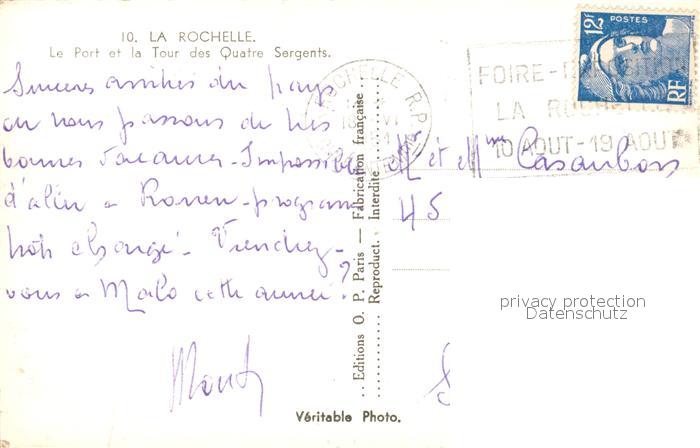 10. LA ROCHELLE.
Le Port et la Tour des Quatre Sergents.
Sincères amitiés du pays
où nous passons de très
bonnes vacances - Impossible
d'aller à Rouen - programme
trop changé - Viendrez-
vous à Malo cette année ?
12F POSTES
RF
LA ROCHELLE R.P.
FOIRE-EXPOSITION
LA ROCHELLE
10 AOUT-19 AOUT
Mr et Mme Casaubon
45
Editions O. P. Paris — Fabrication française
Reproduct. Interdite
Véritable Photo.
privacy protection
Datenschutz